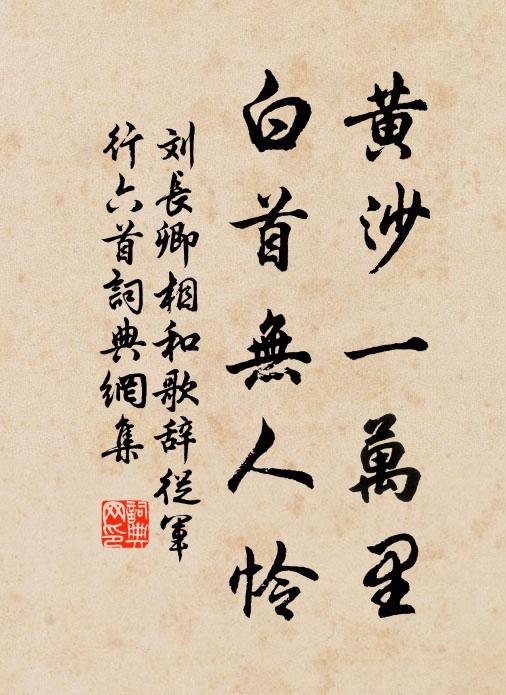 黃沙一萬里
白首無人怜
刘長卿相和歌辞從軍
行六首詞典網集
詞典
网印